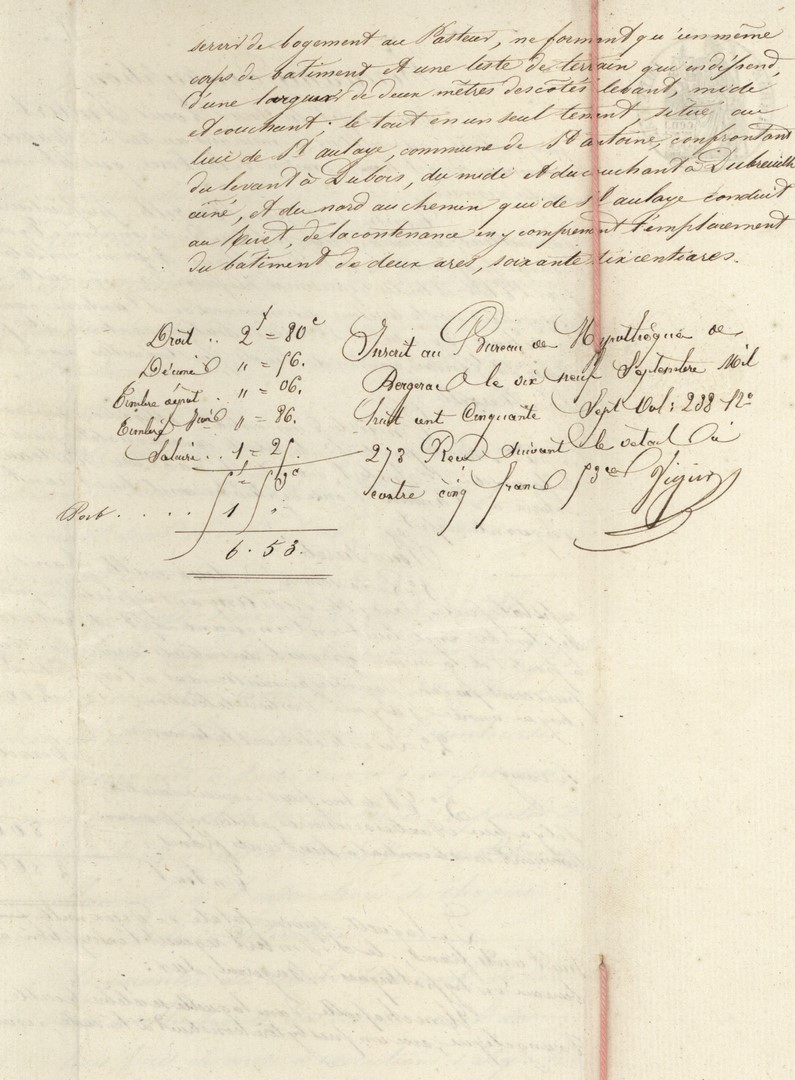 servir de logement au Pasteur, ne formant qu'un même
corps de bâtiment et une leste de terrain qui en dépend,
d'une largeur de deux mètres des côtés levant, midi
et couchant; le tout en un seul tenant, situé au
lieu de St aulaye, commune de St antoine, confrontant
du levant à Dubois, du midi et du couchant à Dubreuilh
ainé, et du nord au chemin qui de St aulaye conduit
au , de la contenance en y comprenant l'emplacement
du bâtiment de deux ares, soixante dix centiares.
Droit .. 2f = 80c
Décime " = 56.
Timbre dépôt . " = 06.
Timbre " = 86.
Salaire .. 1 = 25.
5f = 53c
Port . . . . . 1 "
6 . 53.
Inscrit au Bureau des Hypothèques de
Bergerac le dix neuf Septembre Mil
huit cent Cinquante Sept Vol: 238 No
273 Reçu suivant le détail ci
contre cinq francs 53c